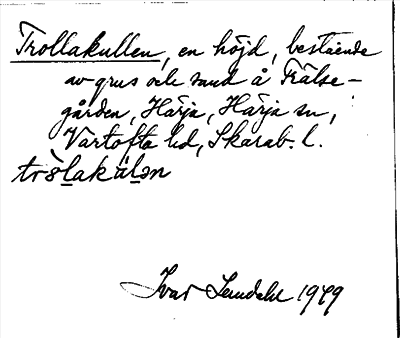 Trollakullen, en höjd, bestående
av grus och sand å Frälse-
gården, Härja, Härja sn,
Vartofta hd, Skarab. l.
tròlakúlən
Ivar Lundahl 1949